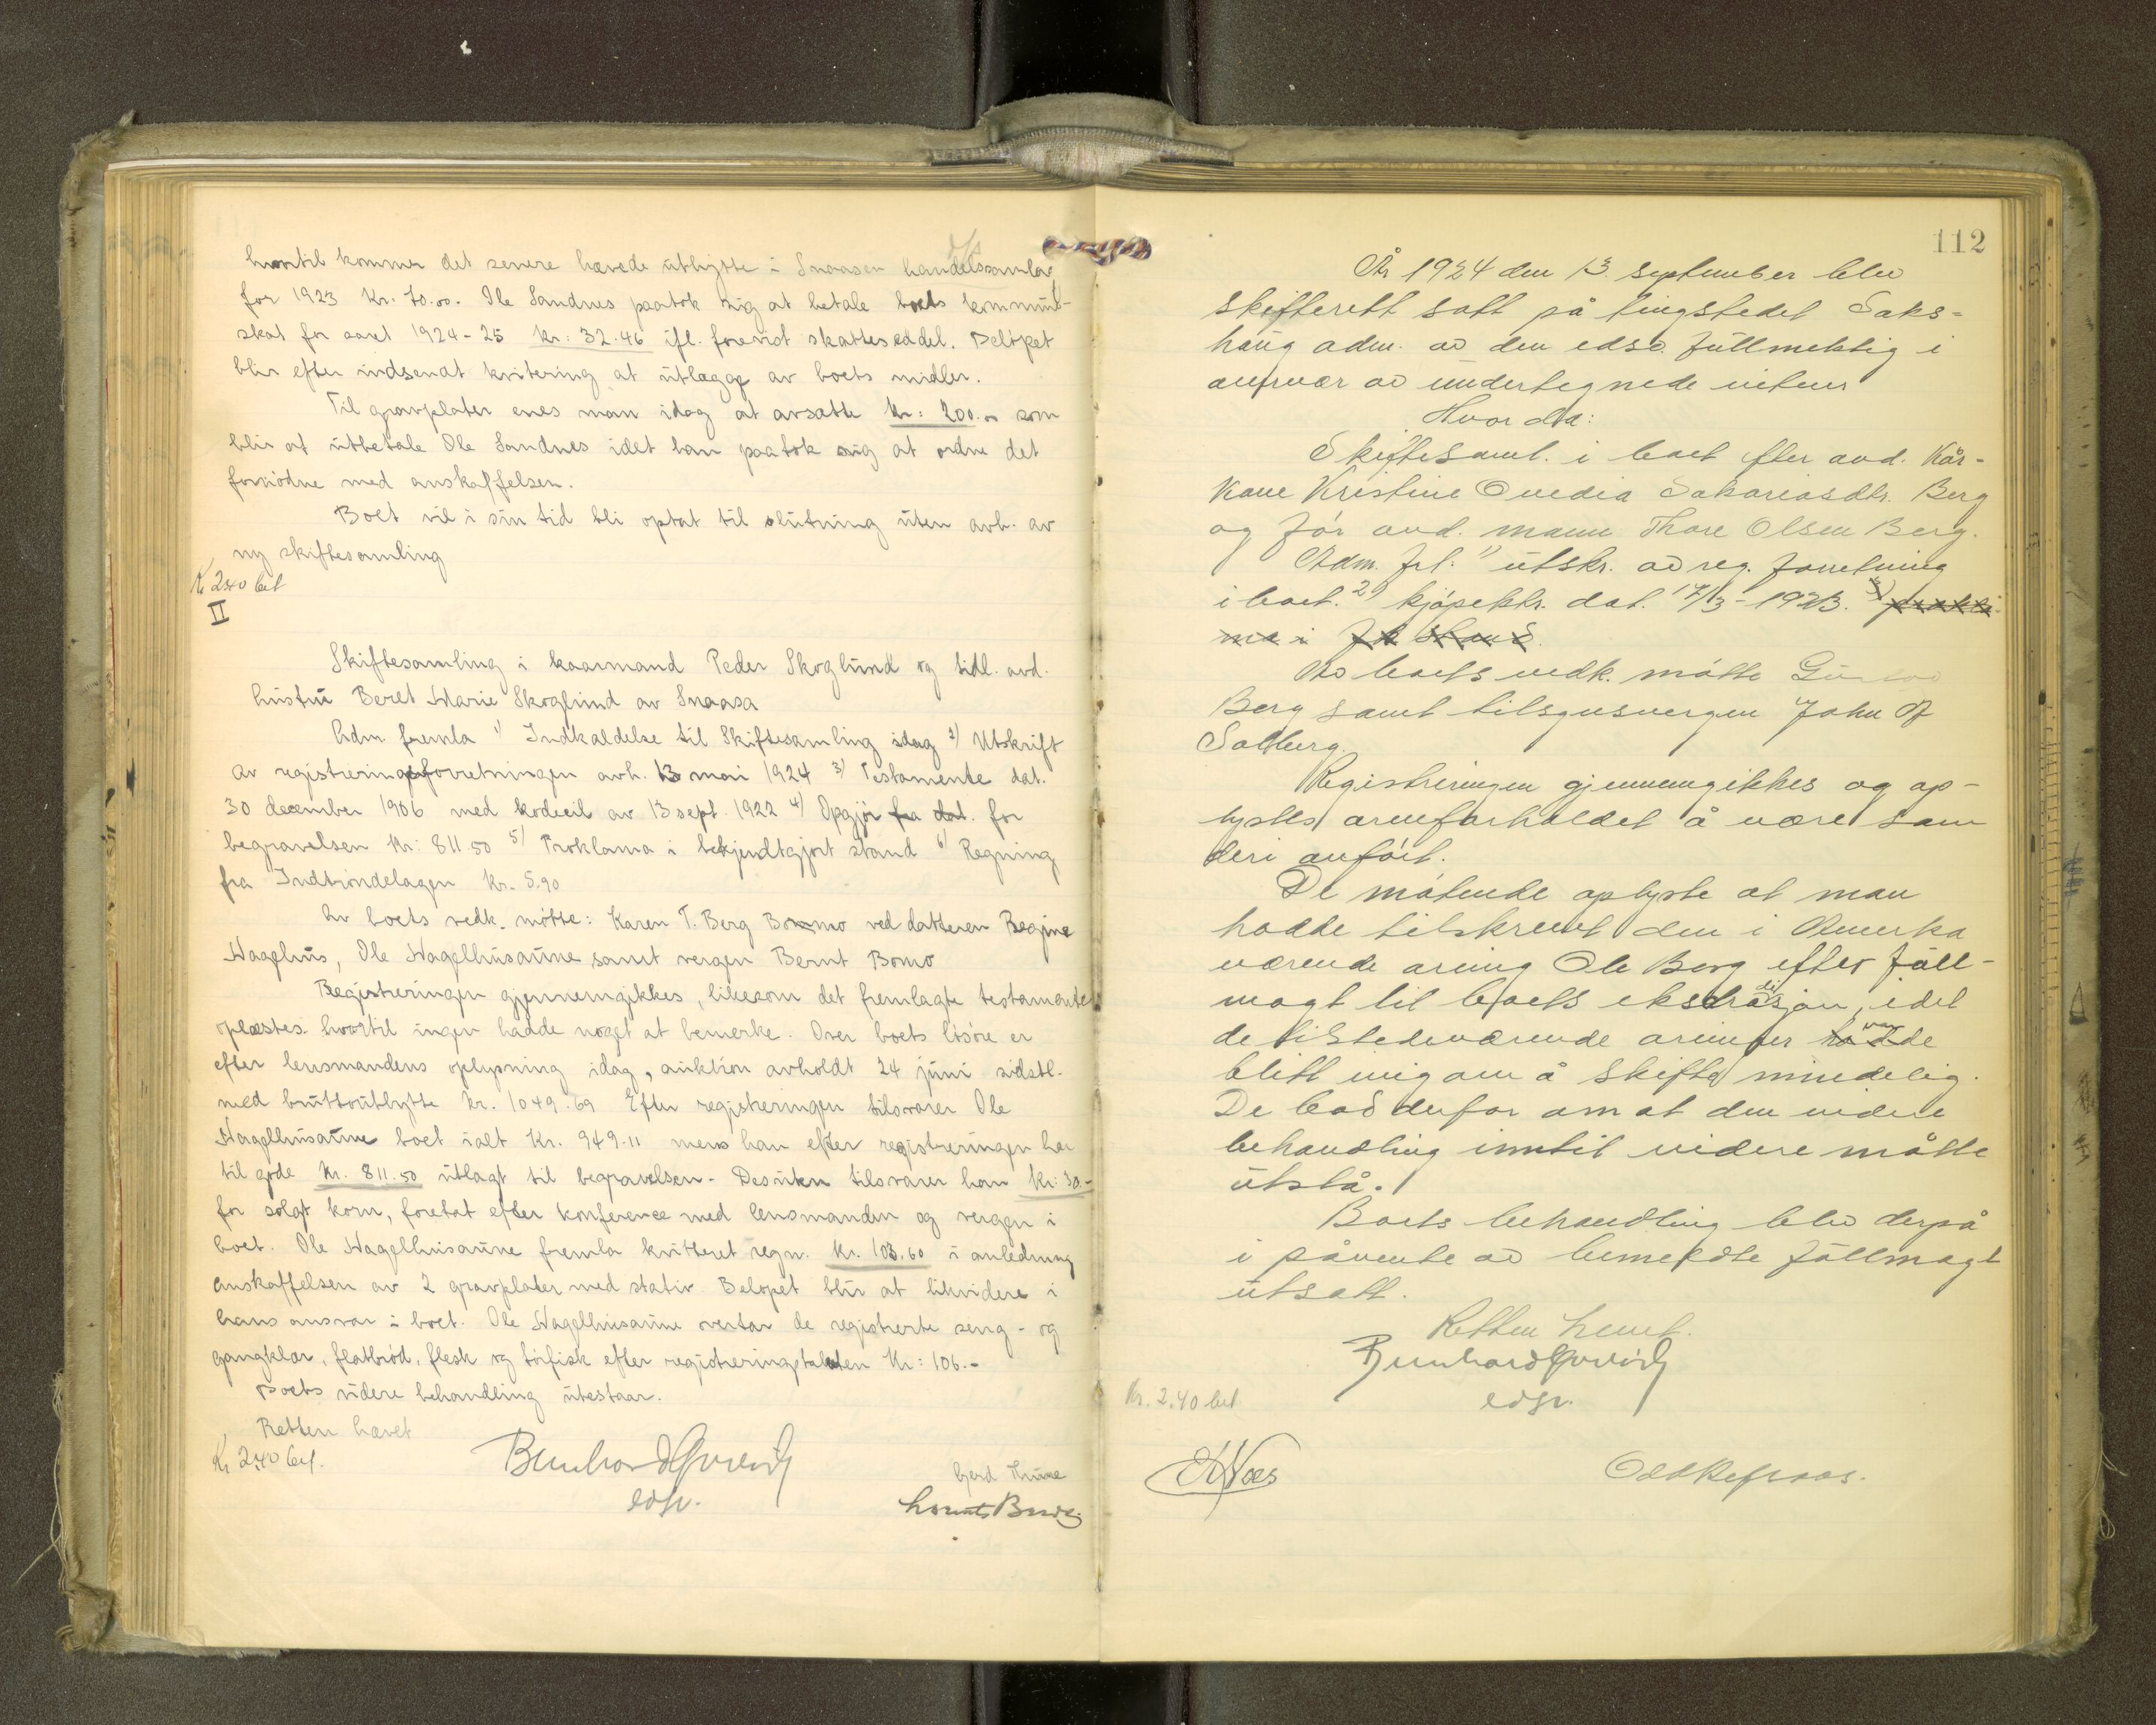 hvortil kommer det senere hævede utbytte i Snaasen handelssamlag
for 1923 Kr. 70.00. Ole Sandnes paatok sig at betale boets kommune-
skat for aaret 1924-25 kr: 32.46 ifl. forevist skatteseddel. Beløpet
blir efter indsendt kvitering at utlægge av boets midler.
Til gravplater enes man idag at avsætte kr: 200.00 som
blir at utbetale Ole Sandnes idet han paatok sig at ordne det
fornødne med anskaffelsen.
Boet vil i sin tid bli optat til slutning uten avh. av
ny skiftesamling
Kr 2.40 bet
II
Skiftesamling i kaarmand Peder Skoglund og tidl. avd.
hustru Beret Marie Skoglund av Snaasa
Adm. fremla 1) Indkaldelse til Skiftesamling idag 2) Utskrift
av registreringsforretningen avh. 13 mai 1924 3) Testamente dat.
30 december 1906 med kodicil av 13 sept. 1922 4) Opgjør fra dat. for
begravelsen Kr: 811.50 5) Proklama i bekjendtgjort stand 6) Regning
fra Indtrøndelagen Kr. 5.90
Av boets vedk. møtte: Karen T. Berg Bommo ved datteren Regine
Hagelhus, Ole Hagelhusaune samt vergen Bernt Bomo
Registreringen gjennemgikkes, likesom det fremlagte testamente
oplæstes hvortil ingen hadde noget at bemerke. Over boets løsøre er
efter lensmandens oplysning idag, auktion avholdt 24 juni sidstl.
med bruttoutbytte kr. 1049.69 Efter registreringen tilsvarer Ole
Hagelhusaune boet ialt Kr. 949.11 mens han efter registreringen har
til gode kr. 811.50 utlagt til begravelsen - Desuten tilsvarer han kr: 30.-
for solgt korn, foretat efter konference med lensmanden og vergen i
boet. Ole Hagelhusaune fremla kvitteret regn. kr. 103.60 i anledning
anskaffelsen av 2 gravplater med stativ. Beløpet blir at likvidere i
hans ansvar i boet. Ole Hagelhusaune overtar de registrerte seng- og
gangklær, flatbrød, flesk og tørfisk efter registreringstaksten Kr: 106.-
Boets videre behandling utestaar.
Retten hævet
Kr 2.40 bet.
edsv.
112
År 1924 den 13. september blev
skifterett satt på tingstedet Saks-
haug adm. av den edsv. fullmektig i
nærvær av undertegnede vitner
Hvor da:
Skiftesaml. i boet efter avd. Kår-
kone Kristine Ovedia Sakariasdtr. Berg
og før avd. mann Thore Olsen Berg.
Adm. frl. 1) utskr. av reg. forretning
i boet. 2) kjøpektr. dat. 17/3-1923. 3) prokla
ma i
Av boets vedk. møtte Gustav
Berg samt tilsynsvergen John O
Solberg.
Registreringen gjennemgikkes og op-
lystes arveforholdet å være som
deri anført.
De møtende oplyste at man
hadde tilskrevet den i Amerika
værende arving Ole Berg efter full-
magt til boets ekstradisjon, idet
de tilstedeværende arvinger hadde var
blitt enig om å skifte mindelig.
De bad derfor om at den videre
behandling inntil videre måtte
utstå.
Boets behandling blev derpå
i påvente av bemeldte fullmagt
utsatt.
Retten hevet.
edsv.
Kr. 2.40 bet